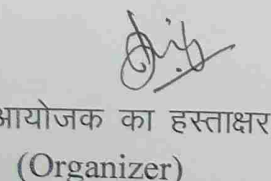 आयोजक का हस्ताक्षर
(Organizer)